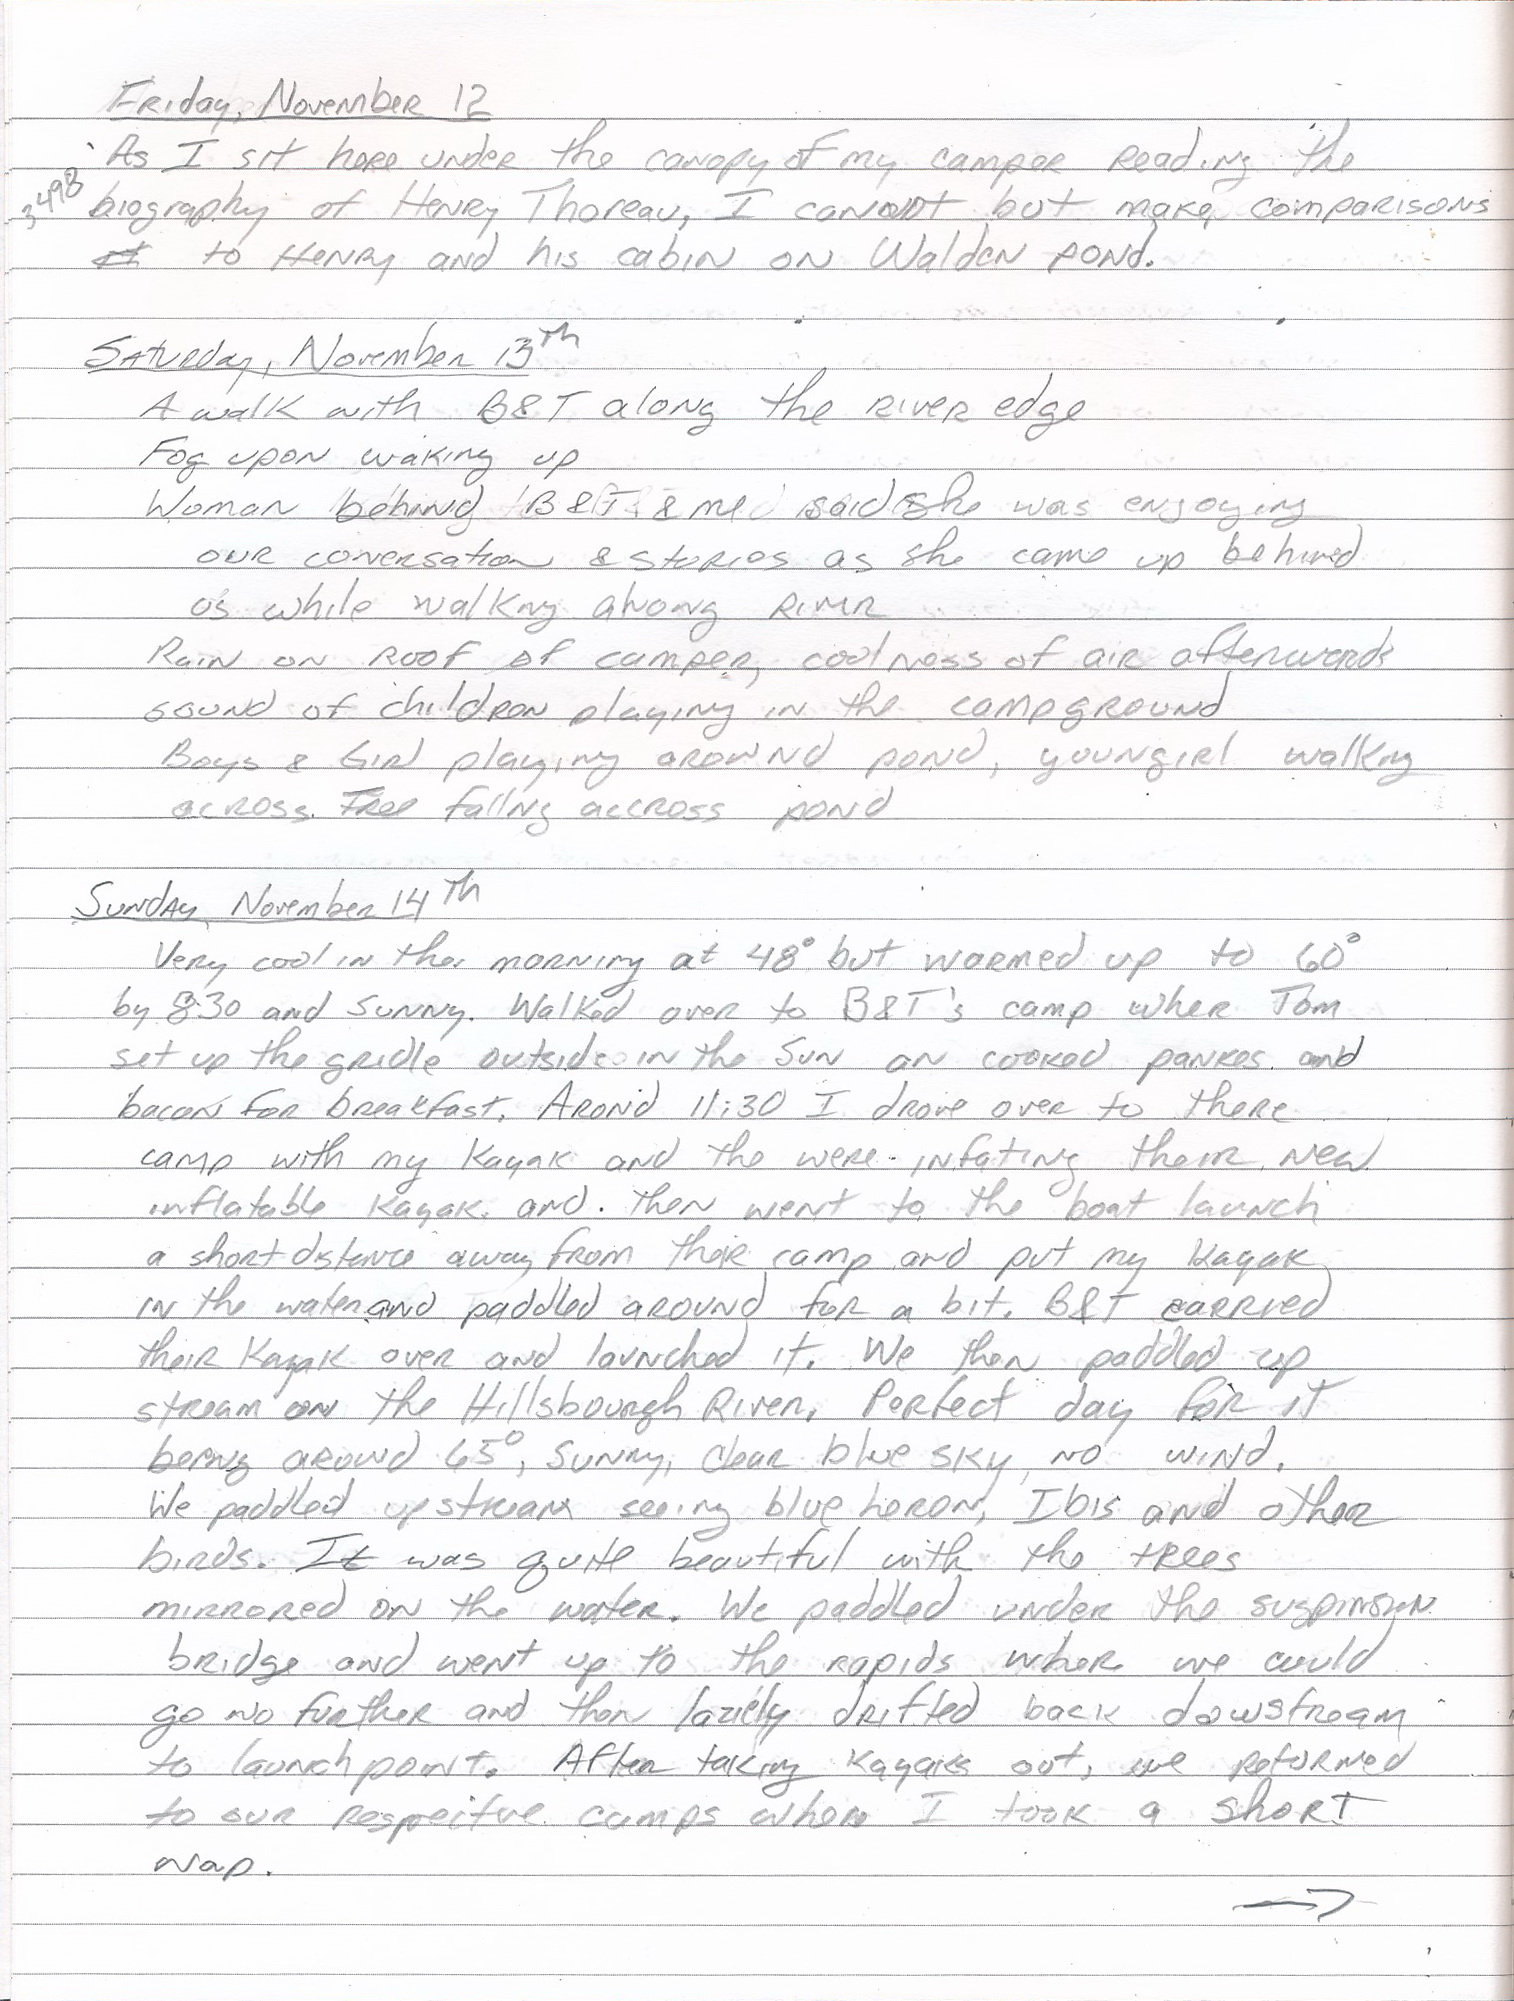 Friday, November 12
As I sit here under the canopy of my camper reading the
3,498
biography of Henry Thoreau, I cannot but make comparisons
to Henry and his cabin on Walden pond.
Saturday, November 13th
A walk with B&T along the river edge
Fog upon waking up
Woman behind B&T & me said she was enjoying
our conversation & stories as she came up behind
us while walkng along River
Rain on roof of camper, coolness of air afterwards
sound of children playing in the campground
Boys & Girl playing around pond, young girl walkng
across. Tree fallng accross pond
Sunday, November 14th
Very cool in the morning at 48° but warmed up to 60°
by 8:30 and sunny. Walked over to B&T's camp wher Tom
set up the gridle outside in the sun an cooked pankes and
bacon for breakfast. Arond 11:30 I drove over to there
camp with my Kayak and the were infating their new
inflatable kayak and then went to the boat launch
a short distance away from their camp and put my kayak
in the water and paddled around for a bit. B&T carried
their Kayak over and launched it. We then paddled up
stream on the Hillsbourgh River. Perfect day for it
being around 65°, sunny, clear blue sky, no wind.
We paddled upstream seeing blue heron, Ibis and other
birds. It was quite beautiful with the trees
mirrored on the water. We paddled under the suspinsion
bridge and went up to the rapids where we could
go no further and then laziely drifted back dowstream
to launch point. After taking kayaks out, we returned
to our respecitve camps where I took a short
nap.